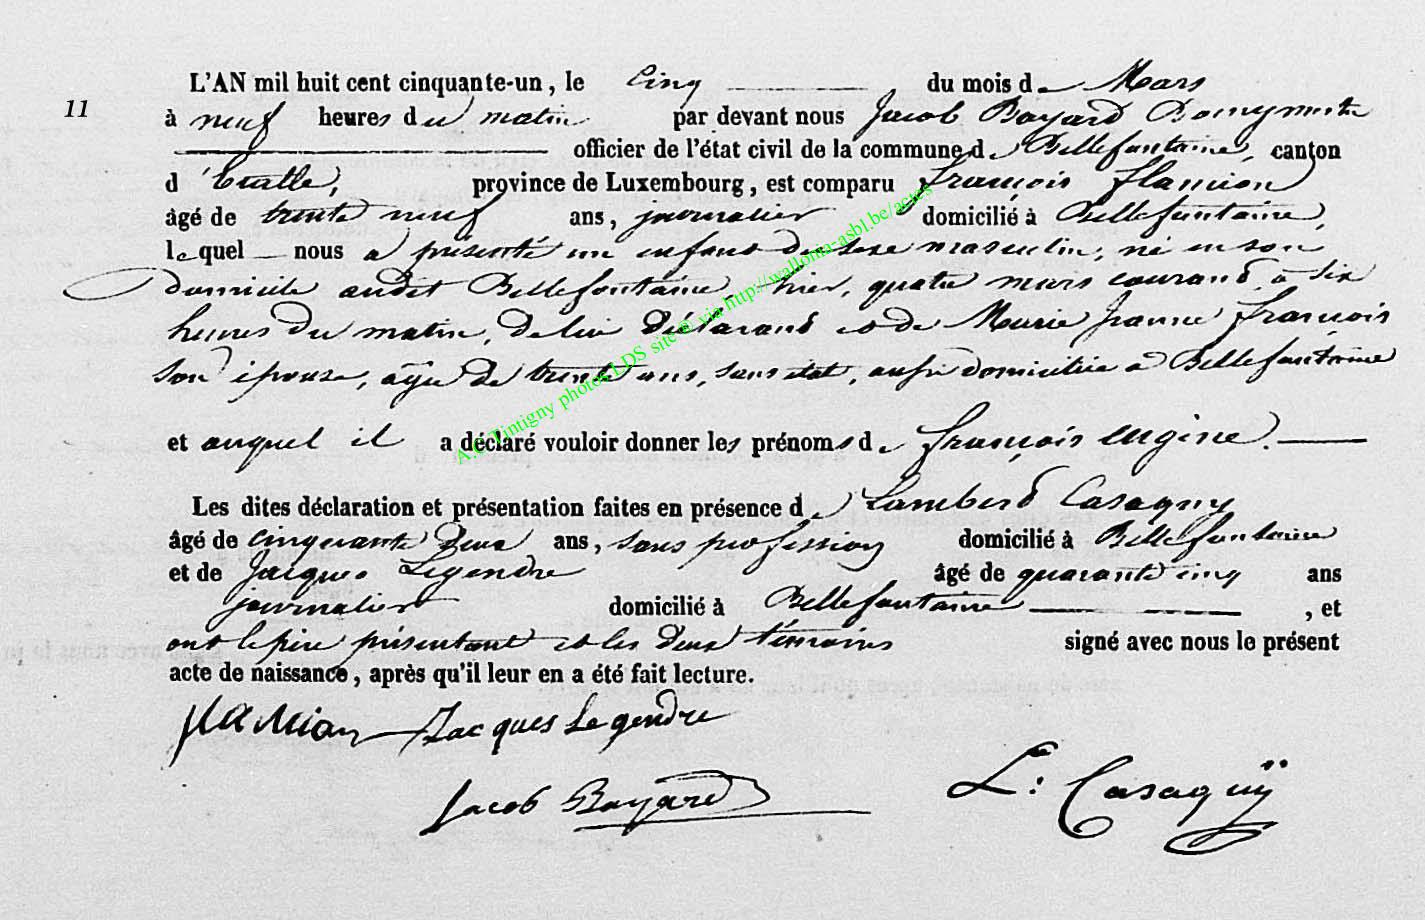 L'AN mil huit cent cinquante-un, le Cinq du mois de Mars
11
à neuf heures du matin par devant nous Jacob Bayard Bourgmestre
officier de l'état civil de la commune de Bellefontaine, canton
d'Etalle, province de Luxembourg, est comparu François flamion
âgé de trente neuf ans, journalier domicilié à Bellefontaine,
lequel nous a présenté un enfant du sexe masculin, né en son
domicile audit Bellefontaine, hier, quatre mars courant, à six
heures du matin, de lui déclarant et de Marie Jeanne françois
son épouse, âgée de trente ans, sans état, aussi domiciliée à Bellefontaine
et auquel il a déclaré vouloir donner les prénoms de françois eugène.
Les dites déclaration et présentation faites en présence de Lambert Casaquy
âgé de cinquante deux ans, sans profession domicilié à Bellefontaine
et de Jacques Legendre âgé de quarante cinq ans
journalier domicilié à Bellefontaine , et
ont le père présentant et les deux témoins signé avec nous le présent
acte de naissance, après qu'il leur en a été fait lecture.
flamion Jacques Legendre
Jacob Bayard L: Casaquÿ
A.C.Tintigny photos LDS site © via http://wallonia-asbl.be/actes